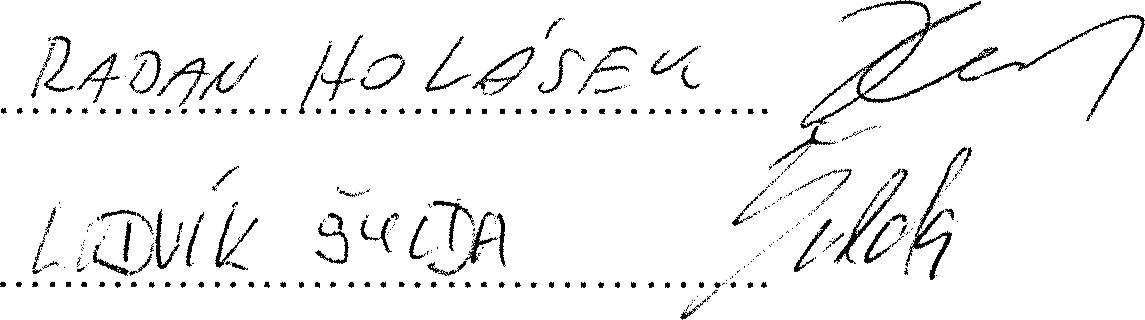 RADAN HOLÁSEK
LUDVÍK ŠULDA Šulda